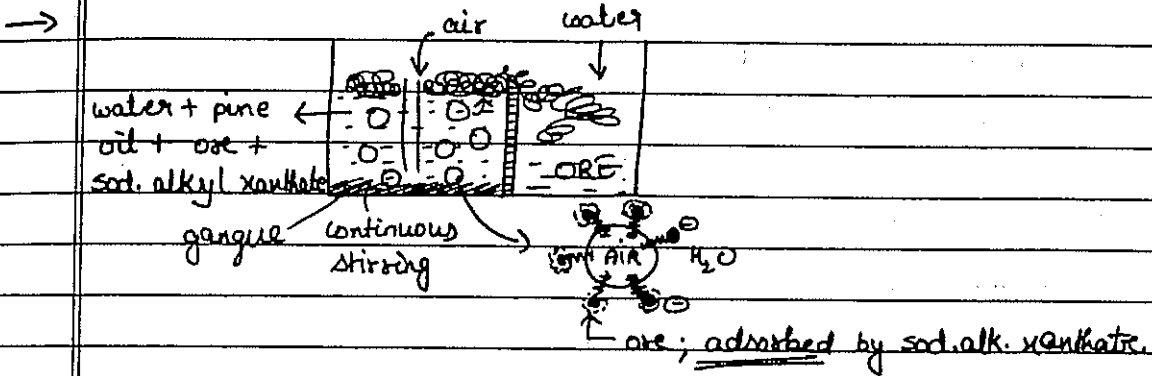 air
water
water + pine
oil + ore +
sod. alkyl xanthate
ORE
gangue
continuous
stirring
AIR
H₂O
ore ; adsorbed by sod. alk. xanthate.